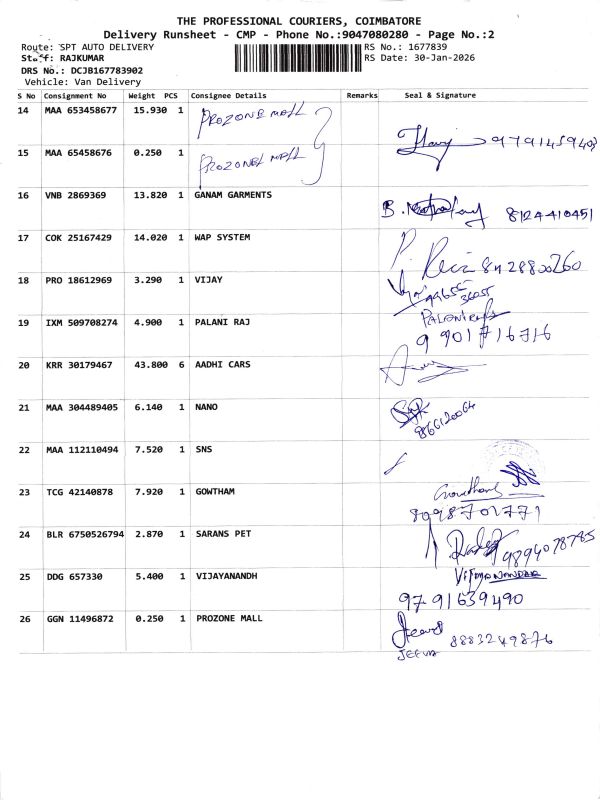 THE PROFESSIONAL COURIERS, COIMBATORE
Delivery Runsheet - CMP - Phone No.:9047080280 - Page No.:2
Route: SPT AUTO DELIVERY RS No.: 1677839
Staff: RAJKUMAR RS Date: 30-Jan-2026
DRS No.: DCJB167783902
Vehicle: Van Delivery
S No Consignment No Weight PCS Consignee Details Remarks Seal & Signature
14 MAA 653458677 15.930 1 PROZONE MALL
15 MAA 65458676 0.250 1 PROZONE MALL
16 VNB 2869369 13.820 1 GANAM GARMENTS B. 8124410451
17 COK 25167429 14.020 1 WAP SYSTEM
18 PRO 18612969 3.290 1 VIJAY 99655 36055
19 IXM 509708274 4.900 1 PALANI RAJ PALANIRAJ
9901716716
20 KRR 30179467 43.800 6 AADHI CARS
21 MAA 304489405 6.140 1 NANO
22 MAA 112110494 7.520 1 SNS
23 TCG 42140878 7.920 1 GOWTHAM Gowtham
8098701771
24 BLR 6750526794 2.870 1 SARANS PET 9894078785
25 DDG 657330 5.400 1 VIJAYANANDH VIJAYANANDH
9791639490
26 GGN 11496872 0.250 1 PROZONE MALL 8883249876
JEEVA